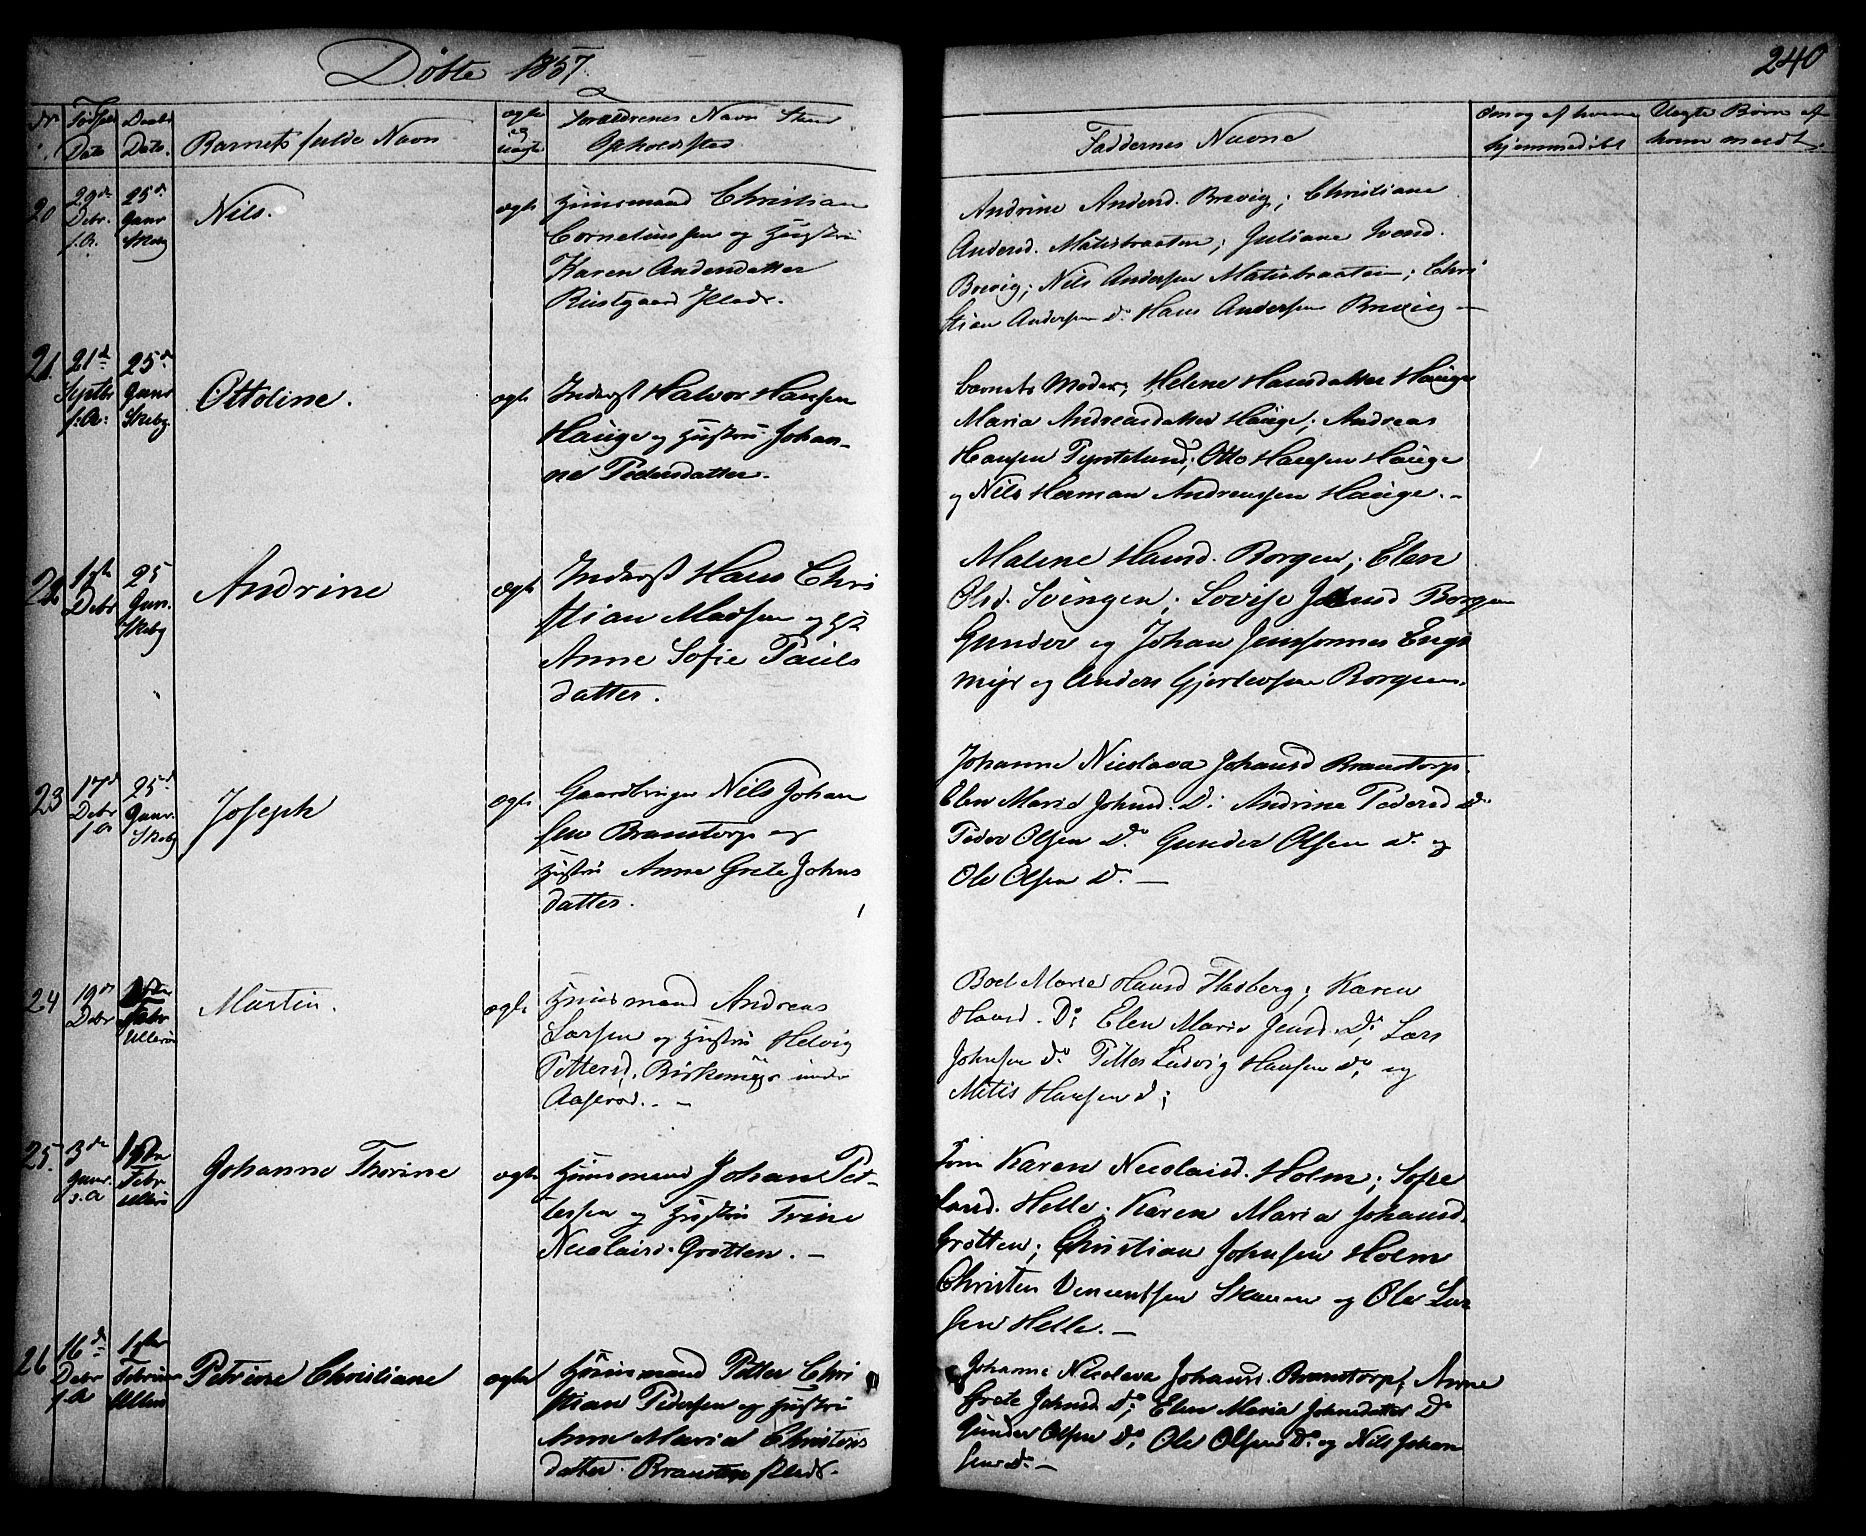 Døbte 1857.
240
Nr.
Fødsels Date
Daabs Date.
Barnets fulde Navn
ægte og uægte
Forældrenes Navn Stand Opholdssted
Faddernes Navne
Om og af hvem hjemmedøbt
Uegte Børn af hvem meldt.
20
29de Debr f.A.
25de Januar Skebg
Nils.
ægte
Huusmand Christian
Corneliussen og Hustru
Karen Andersdatter
Rustgaard Plads.
Andrine Andersd. Brevig; Christiane
Andersd. Matistraaten; Juliane Iversd.
Brevig; Nils Andersen Matistraaten; Chri
stian Andersen do Hans Andersen Brevig —
21.
21de Septbr f:A:
25de Januar Skebg.
Ottoline.
ægte
Inderst Halvor Hansen
Hauge og Hustru Johan-
ne Pedersdatter.
barnets Moder; Helene Hansdatter Hauge
Maria Andreasdatter Hauge; Andreas
Hansen Tyntelund; Otto Hansen Hauge
og Nils Herman Andreassen Hauge. -
22
Debr
25 Jan. Skebg
Andrine
ægte
Inderst Hans Chri
stian Madsen og Hst
Anne Sofie Pauls
datter.
Malene Hansd. Borgen; Elen
Olsd. Svingen; Lovise Jensd Borgen
Gunder og Johan Jenssonnes Enge
myr og Anders Gjerlovsen Borgen.
23
17de Debr f.A
25de Januar. Skebg
Joseph
ægte
Gaardbruger Nils Johan
sen Bramstorp og
Hustru Anne Grete Johns
datter.
Johanne Nicolava Johansd Bramstorp.
Elen Marie Johnsd. Do; Andrine Pedersd Do
Peder Olsen Do Gunder Olsen do og
Ole Olsen Do. —
24
19de Debr
1ste Febr Ullerøe
Martin.
ægte
Huusmand Andreas
Larsen og Hustru Helvig
Pettersd. Birkemyr under
Aaserød. -
Boel Marie Hansd Fladberg; Karen
Hansd. Do; Elen Marie Jensd. Do; Lars
Johnsen Do Petter Ludvig Hansen Do, og
Metis Hansen d;
25.
3de Januar. s.A
1ste Febr Ullerø
Johanne Thorine
ægte
Huusmand Johan Pet-
tersen og Hustru Trine
Nicolaisd. Grotten. -
Karen Nicolaisd. Holm; Sofie
Larsd. Helle; Karen Maria Johansd.
Grotten; Christian Johnsen Holm
Christen Vincentsen Skauen og Ole Lar
sen Helle. —
26
16de Debr f.A
1ste Februar Ullerø
Petrine Christiane
ægte
Huusmand Petter Chri
stian Pedersen og Hustru
Anne Maria Christens
datter. Bramstorp Plads.
Johanne Nicolava Johansd. Bramstorp; Anne
Grete Johnsd Do; Elen Maria Johnsdatter Do
Gunder Olsen Do; Ole Olsen Do og Nils Johan
sen Do. —